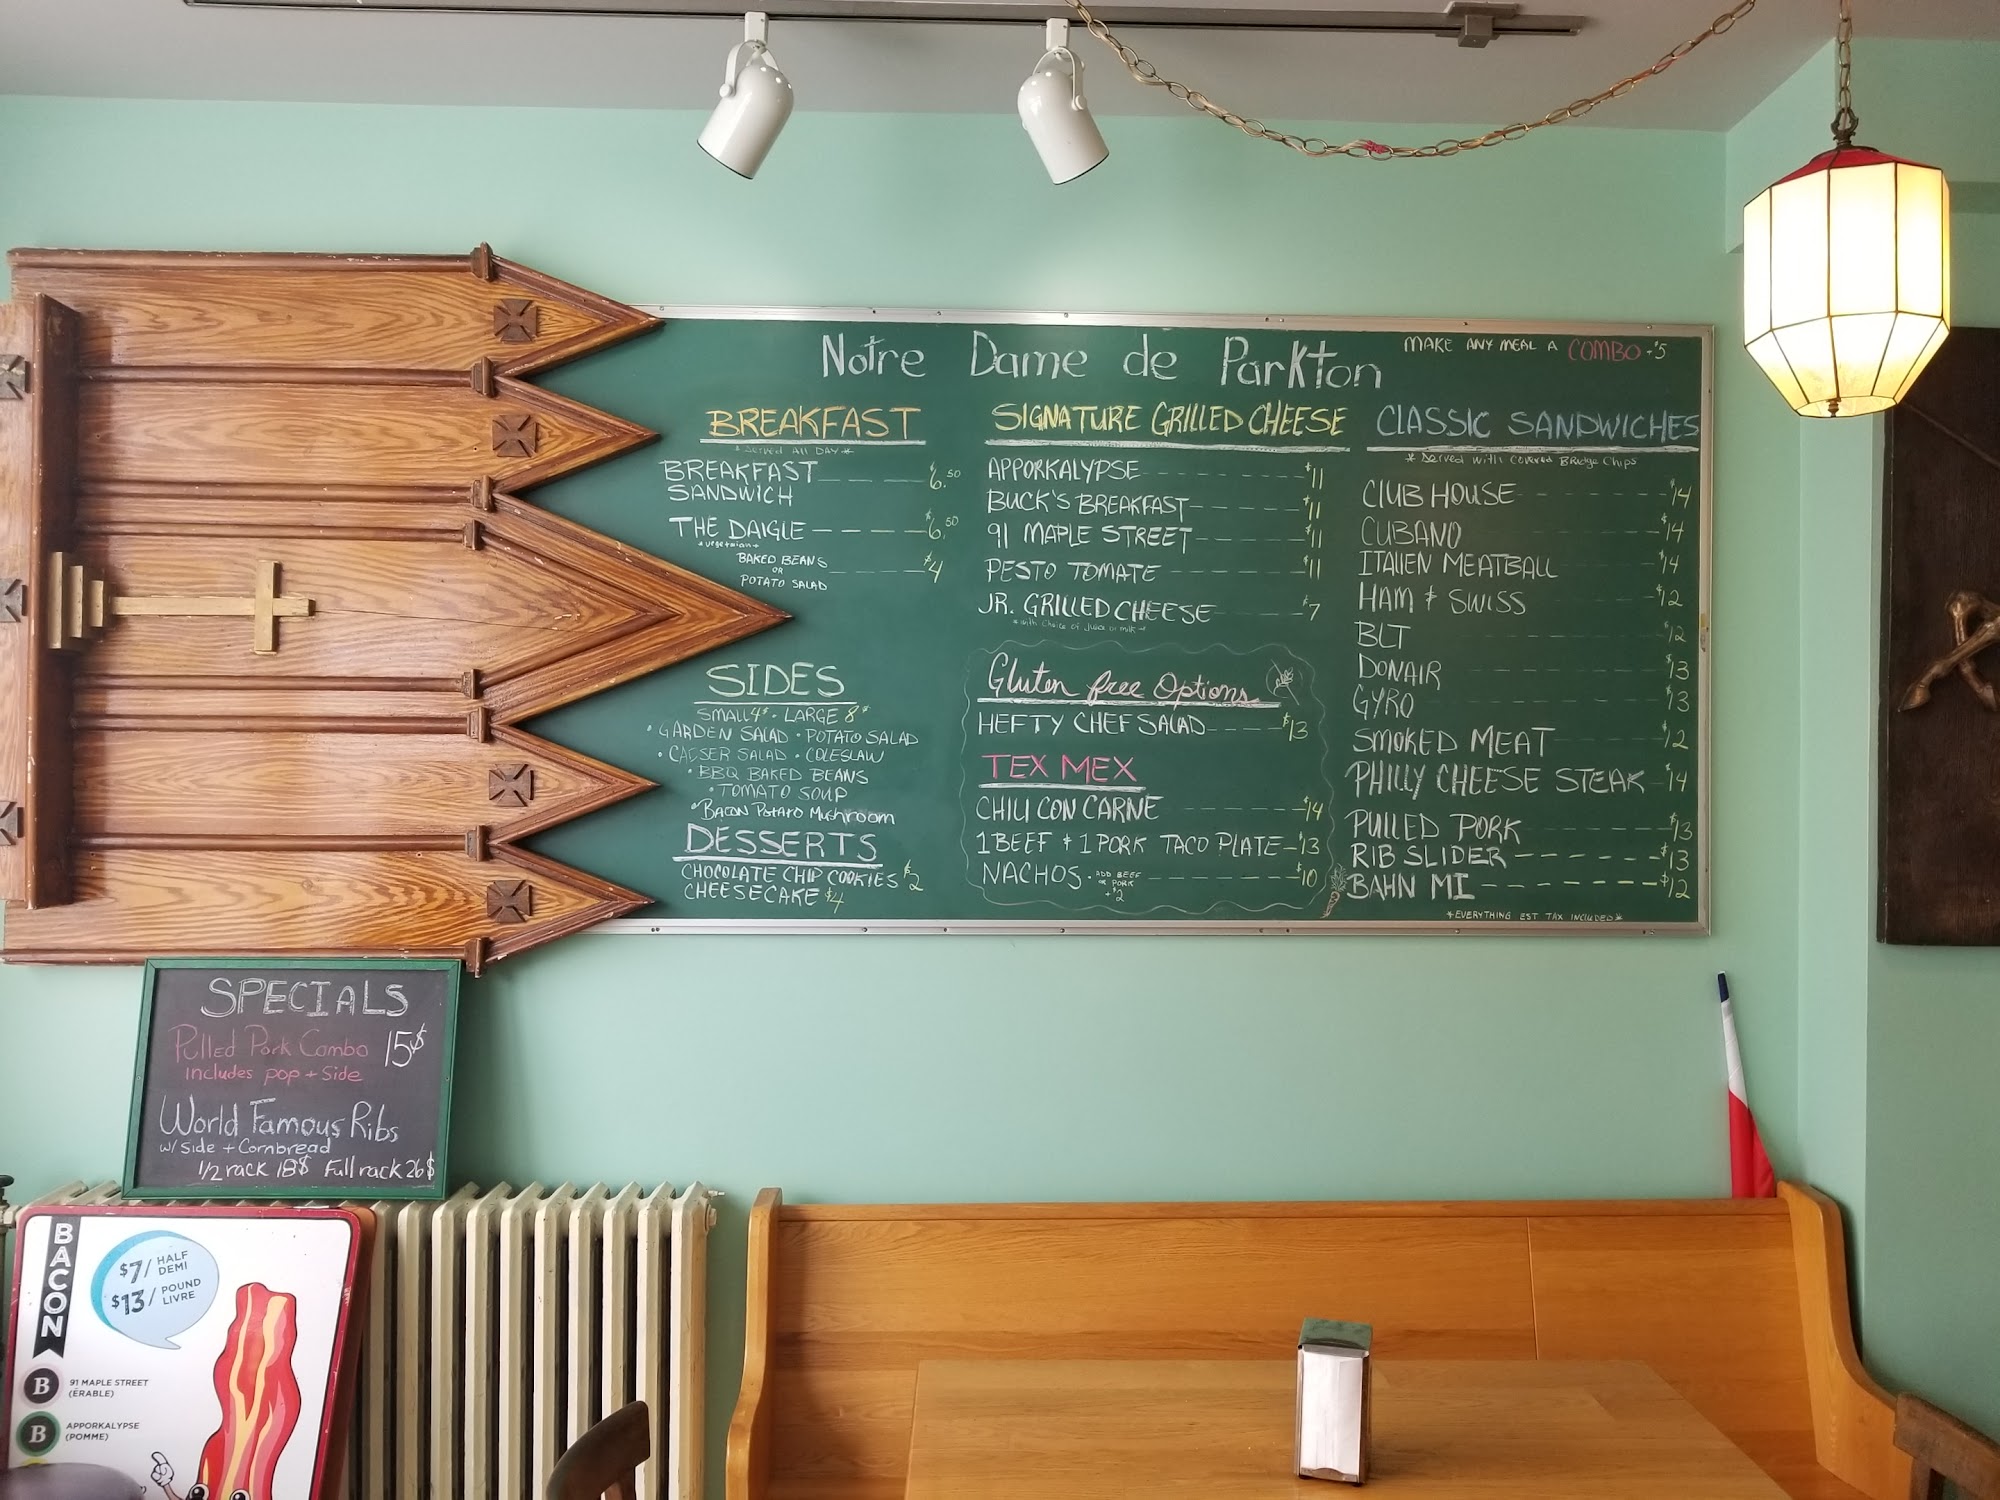 Notre Dame de Parkton
MAKE ANY MEAL A COMBO +$5
BREAKFAST
* Served ALL DAY *
BREAKFAST SANDWICH $6.50
THE DAIGLE $6.50
*vegetarian*
BAKED BEANS
OR
POTATO SALAD $4
SIDES
SMALL 4$ · LARGE 8$
· GARDEN SALAD · POTATO SALAD
· CAESER SALAD · COLESLAW
· BBQ BAKED BEANS
· TOMATO SOUP
· Bacon Potato Mushroom
DESSERTS
CHOCOLATE CHIP COOKIES $2
CHEESECAKE $4
SIGNATURE GRILLED CHEESE
APPORKALYPSE $11
BUCK'S BREAKFAST $11
91 MAPLE STREET $11
PESTO TOMATE $11
JR. GRILLED CHEESE $7
*with choice of Juice or milk*
Gluten free Options
HEFTY CHEF SALAD $13
TEX MEX
CHILI CON CARNE $14
1 BEEF + 1 PORK TACO PLATE $13
NACHOS · ADD BEEF OR PORK +$2 $10
CLASSIC SANDWICHES
* Served with Covered Bridge Chips
CLUB HOUSE $14
CUBANO $14
ITALIEN MEATBALL $14
HAM + SWISS $12
BLT $12
DONAIR $13
GYRO $13
SMOKED MEAT $12
PHILLY CHEESE STEAK $14
PULLED PORK $13
RIB SLIDER $13
BAHN MI $12
*EVERYTHING EST TAX INCLUDED*
SPECIALS
Pulled Pork Combo 15$
includes pop + Side
World Famous Ribs
w/ Side + Cornbread
1/2 rack 18$ Full rack 26$
BACON
$7/ HALF DEMI
$13/ POUND LIVRE
B 91 MAPLE STREET
(ÉRABLE)
B APPORKALYPSE
(POMME)